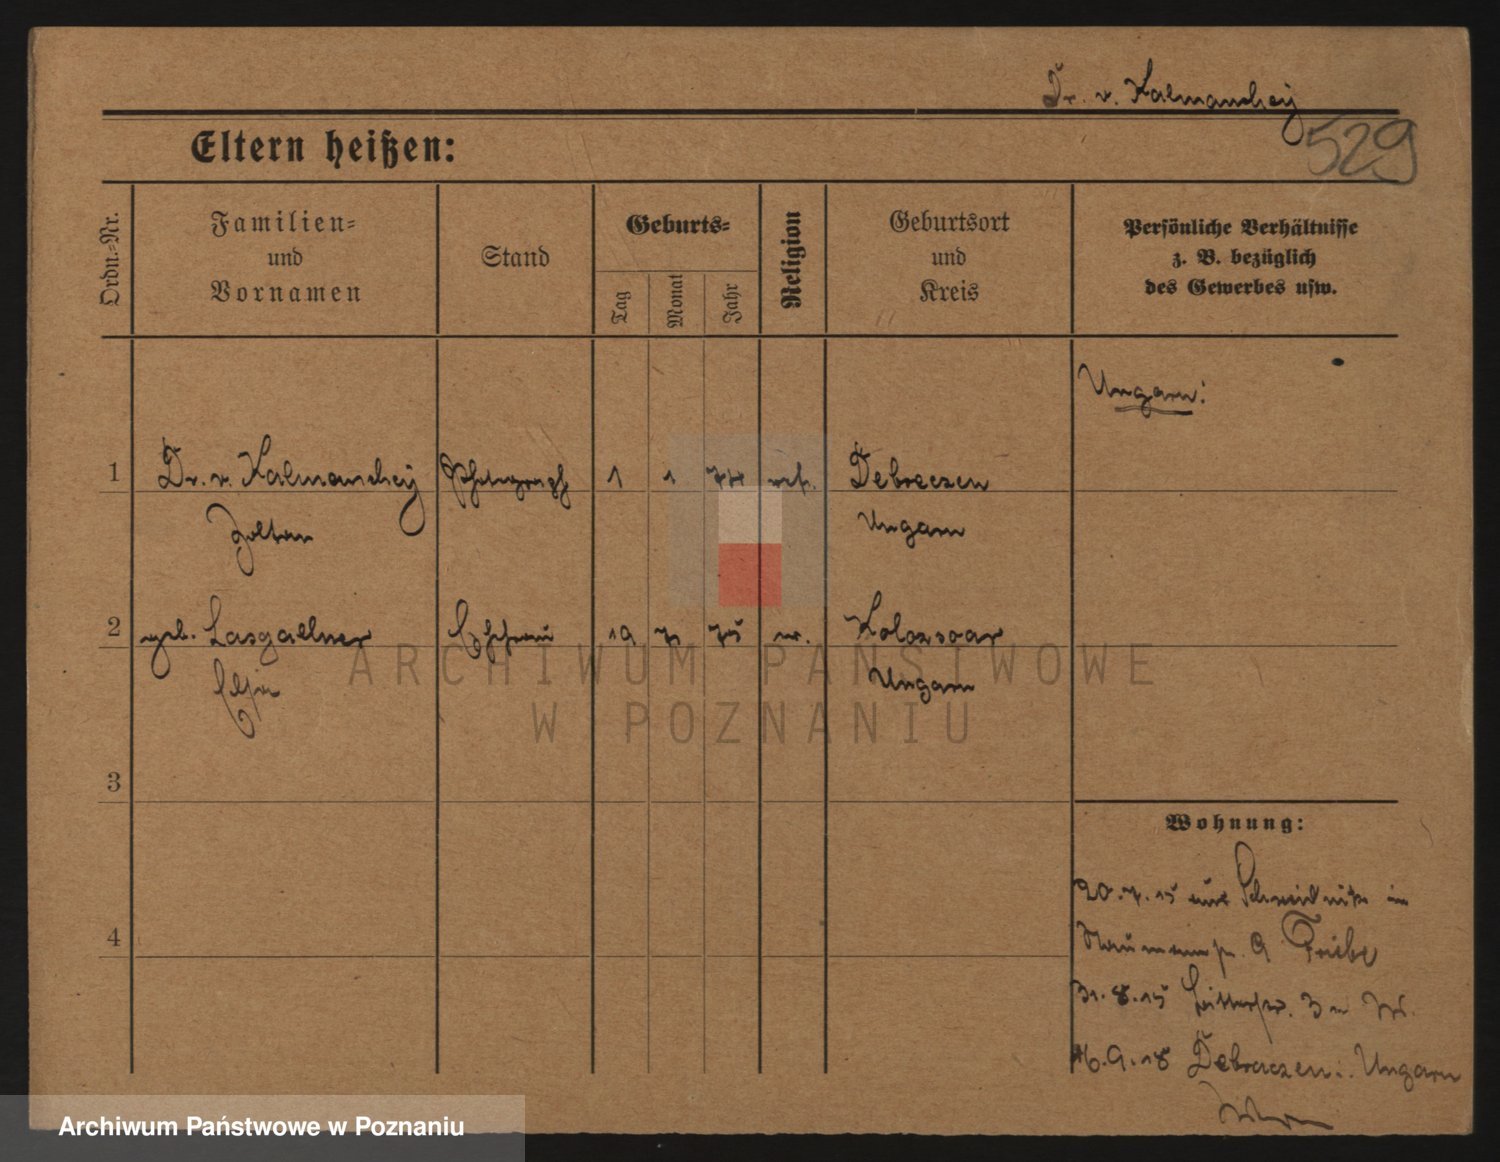 Dr. v. Kalmanchey
529
Eltern heißen:
Ordn.-Nr.
Familien- und Vornamen
Stand
Geburts-
Tag
Monat
Jahr
Religion
Geburtsort und Kreis
Persönliche Verhältnisse
z. B. bezüglich
des Gewerbes usw.
Ungarn:
1 Dr. v. Kalmanchey Photograph 1 1 ref. Debreczen
Zoltan Ungarn
2 geb. Lasgallner Ehefrau 19 7 75 Kolozsvar
Elsa Ungarn
3
4
Wohnung:
20.7.15 aus Schweidnitz in
Naumannstr. 9 Friebe
31.8.15 Ritterstr. 3
16.9.18 Debreczen i. Ungarn
ARCHIWUM PAŃSTWOWE
W POZNANIU
Archiwum Państwowe w Poznaniu